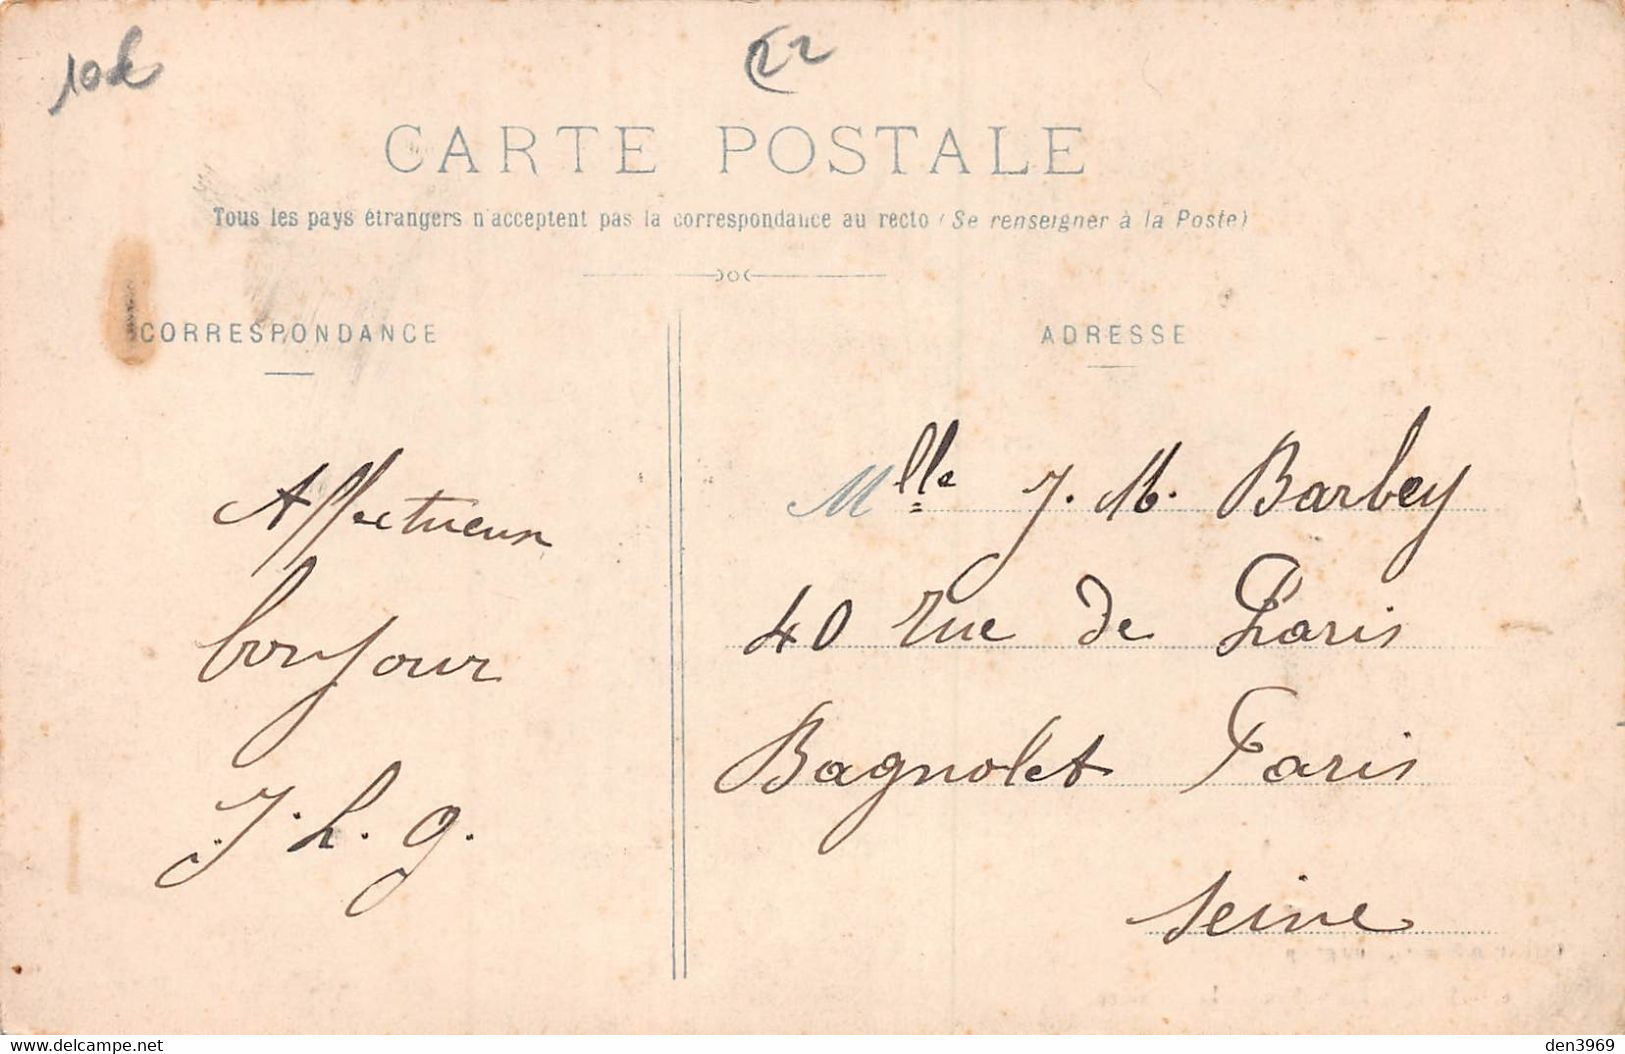 22
CARTE POSTALE
Tous les pays étrangers n'acceptent pas la correspondance au recto (Se renseigner à la Poste)
CORRESPONDANCE
Affectueux
bonjour
J. L. G.
ADRESSE
Mlle J. M. Barbey
40 rue de Paris
Bagnolet Paris
Seine
delcampe.net
den3969